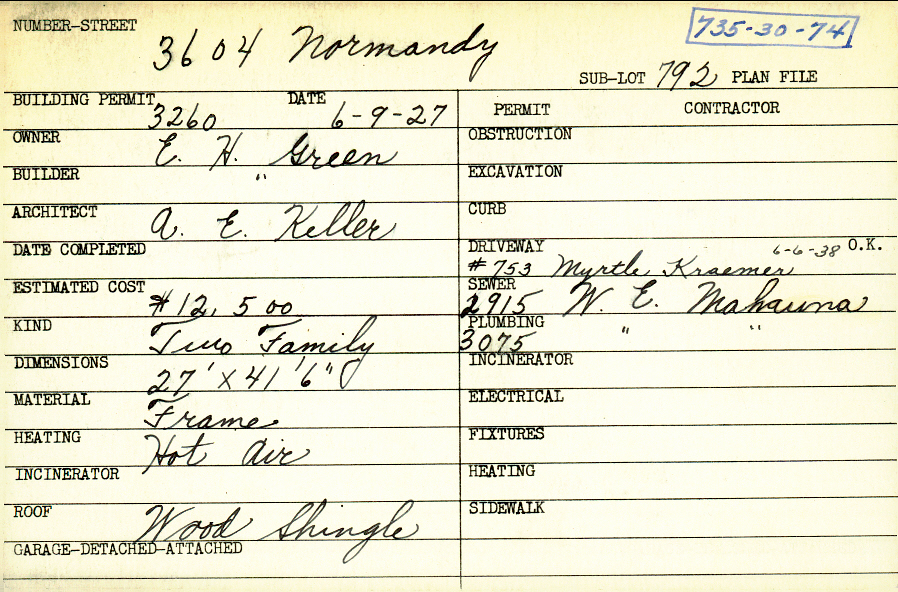 NUMBER-STREET 3604 Normandy 735-30-74
SUB-LOT 792 PLAN FILE
BUILDING PERMIT 3260 DATE 6-9-27
OWNER E. H. Green
BUILDER "
ARCHITECT A. E. Keller
DATE COMPLETED
ESTIMATED COST $12,500
KIND Two Family
DIMENSIONS 27' X 41' 6"
MATERIAL Frame
HEATING Hot Air
INCINERATOR
ROOF Wood Shingle
GARAGE-DETACHED-ATTACHED
PERMIT CONTRACTOR
OBSTRUCTION
EXCAVATION
CURB
DRIVEWAY 6-6-38 O.K.
#753 Myrtle Kraemer
SEWER 2915 W. E. Mahauna
PLUMBING 3075 " "
INCINERATOR
ELECTRICAL
FIXTURES
HEATING
SIDEWALK